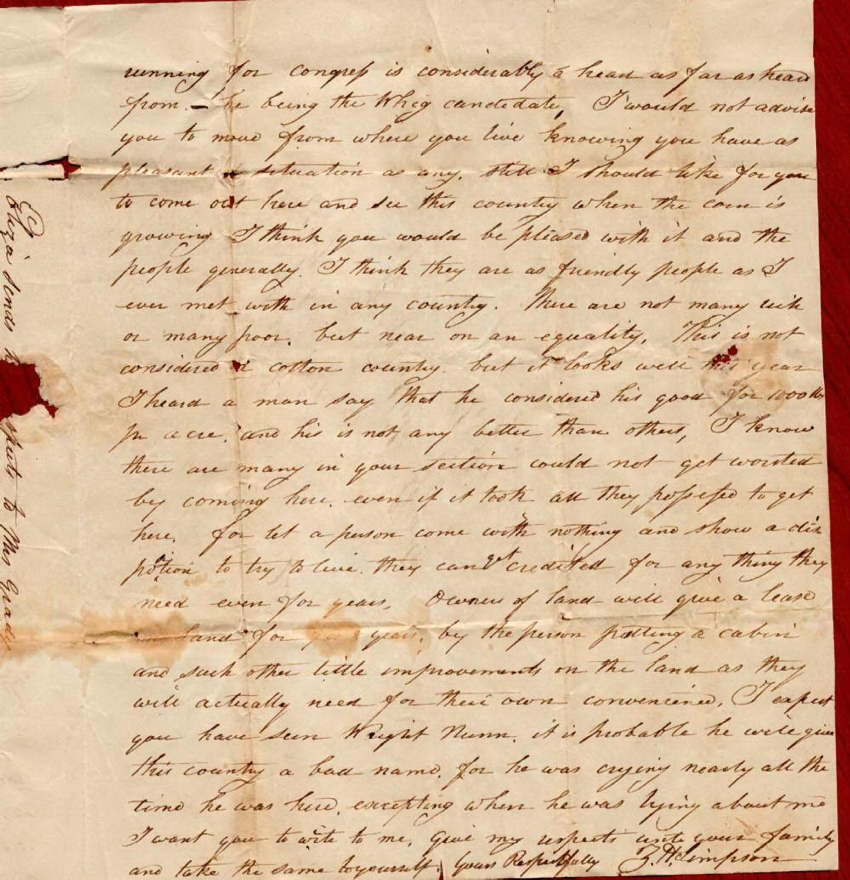 running for congress is considerably a head as far as heard
from. — he being the Whig candedate, I would not advise
you to move from where you live knowing you have as
pleasant a situation as any. still I should like for you
to come out here and see this country when the corn is
growing I think you would be pleased with it and the
people generally. I think they are as friendly people as I
ever met with in any country. There are not many rich
or many poor. but near on an equality, This is not
considered a cotton country. but it looks well this year
I heard a man say that he considered his good for 1000 lb
pr acre. and his is not any better than others, I know
there are many in your section could not get worsted
by coming here. even if it took all they possessed to get
here. for let a person come with nothing and show a dis
position to try to live. they can get credited for any thing they
need even for years, Owners of land will give a lease
land for years, by the person putting a cabin
and such other little improvements on the land as they
will actually need for their own convenience, I expect
you have seen Wright Nunn. it is probable he will give
this country a bad name. for he was crying nearly all the
time he was here. excepting when he was lying about me
I want you to write to me, give my respects unto your family
and take the same to yourself. Yours Respectfully Z. H. Simpson
Eliza sends
to Mrs